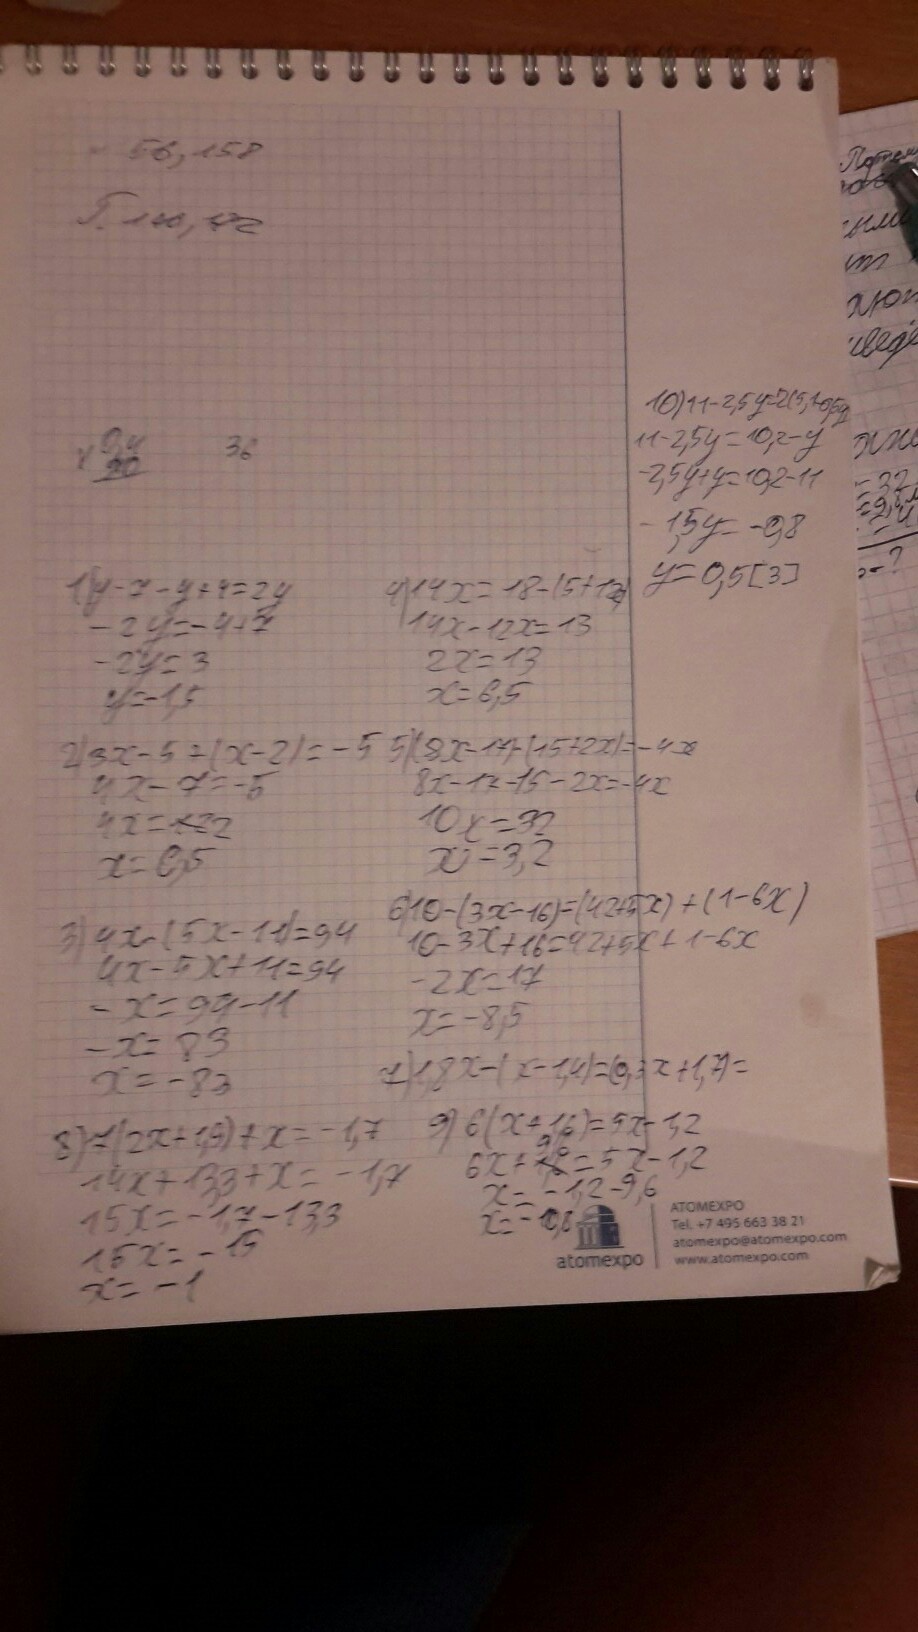 56,158
Г. 170, 172
× 0,4 36
90
1) y-7-y+4=2y
-2y=-4+7
-2y=3
y=-1,5
2) 3x-5+(x-2)=-5
4x-7=-5
4x=2
x=0,5
3) 4x-(5x-11)=94
4x-5x+11=94
-x=94-11
-x=83
x=-83
8) 7(2x+1,9)+x=-1,7
14x+13,3+x=-1,7
15x=-1,7-13,3
15x=-15
x=-1
4) 14x=18-(5+12x)
14x-12x=13
2x=13
x=6,5
5) (8x-17)-(15+2x)=-4x
8x-17-15-2x=-4x
10x=32
x=3,2
6) 10-(3x-16)=(42+5x)+(1-6x)
10-3x+16=42+5x+1-6x
-2x=17
x=-8,5
7) 1,8x-(x-1,4)=(0,3x+1,7)=
9) 6(x+1,6)=5x-1,2
6x+9,6=5x-1,2
x=-1,2-9,6
x=-10,8
10) 11-2,5y=2(5,1-0,5y)
11-2,5y=10,2-y
-2,5y+y=10,2-11
-1,5y=-0,8
y=0,5[3]
atomexpo
ATOMEXPO
Tel. +7 495 663 38 21
atomexpo@atomexpo.com
www.atomexpo.com